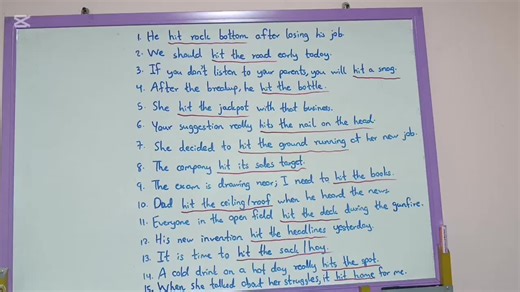 1. He hit rock bottom after losing his job.
2. We should hit the road early today.
3. If you don't listen to your parents, you will hit a snag.
4. After the breakup, he hit the bottle.
5. She hit the jackpot with that business.
6. Your suggestion really hits the nail on the head.
7. She decided to hit the ground running at her new job.
8. The company hit its sales target.
9. The exam is drawing near; I need to hit the books.
10. Dad hit the ceiling/roof when he heard the news
11. Everyone in the open field hit the deck during the gunfire.
12. His new invention hit the headlines yesterday.
13. It is time to hit the sack/hay.
14. A cold drink on a hot day really hits the spot.
15. When she talked about her struggles, it hit home for me.